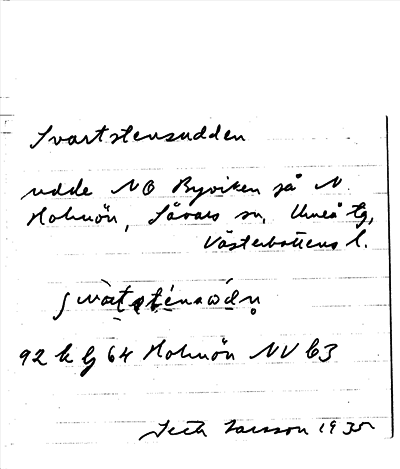 Svartstensudden
udde NO Byviken på N.
Holmön, Sävars sn, Umeå tg,
Västerbottens l.
92 k g 64 Holmön NV b3
Seth Larsson 1935